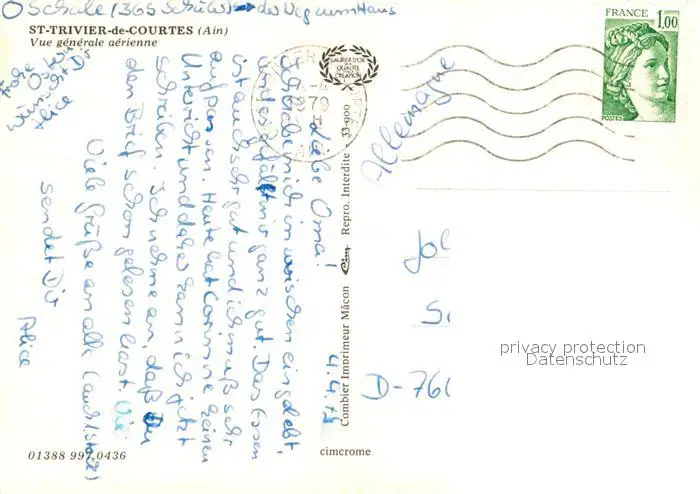 O Schule (365 Schüler) → der
ST-TRIVIER-de-COURTES (Ain)
Vue générale aérienne
Frohe
O
wünscht Dir
Alice
4.4.79
Liebe Oma!
Ich habe mich inzwischen eingelebt,
und es gefällt mir ganz gut. Das Essen
ist auch sehr gut und ich muß sehr
aufpassen. Heute hat Corinne keinen
Unterricht und daher kann ich jetzt
schreiben. Ich nehme an, daß Du
den Brief schon gelesen hast.
Viele Grüße an alle (auch
sendet Dir
Alice
Combier Imprimeur Mâcon Cim Repro. Interdite - 33-000
LAURIER D'OR
DE LA
QUALITÉ
CREATION
1979
FRANCE
1,00
POSTES
Allemagne
D-760
privacy protection
Datenschutz
01388 997.0436
cimcrome